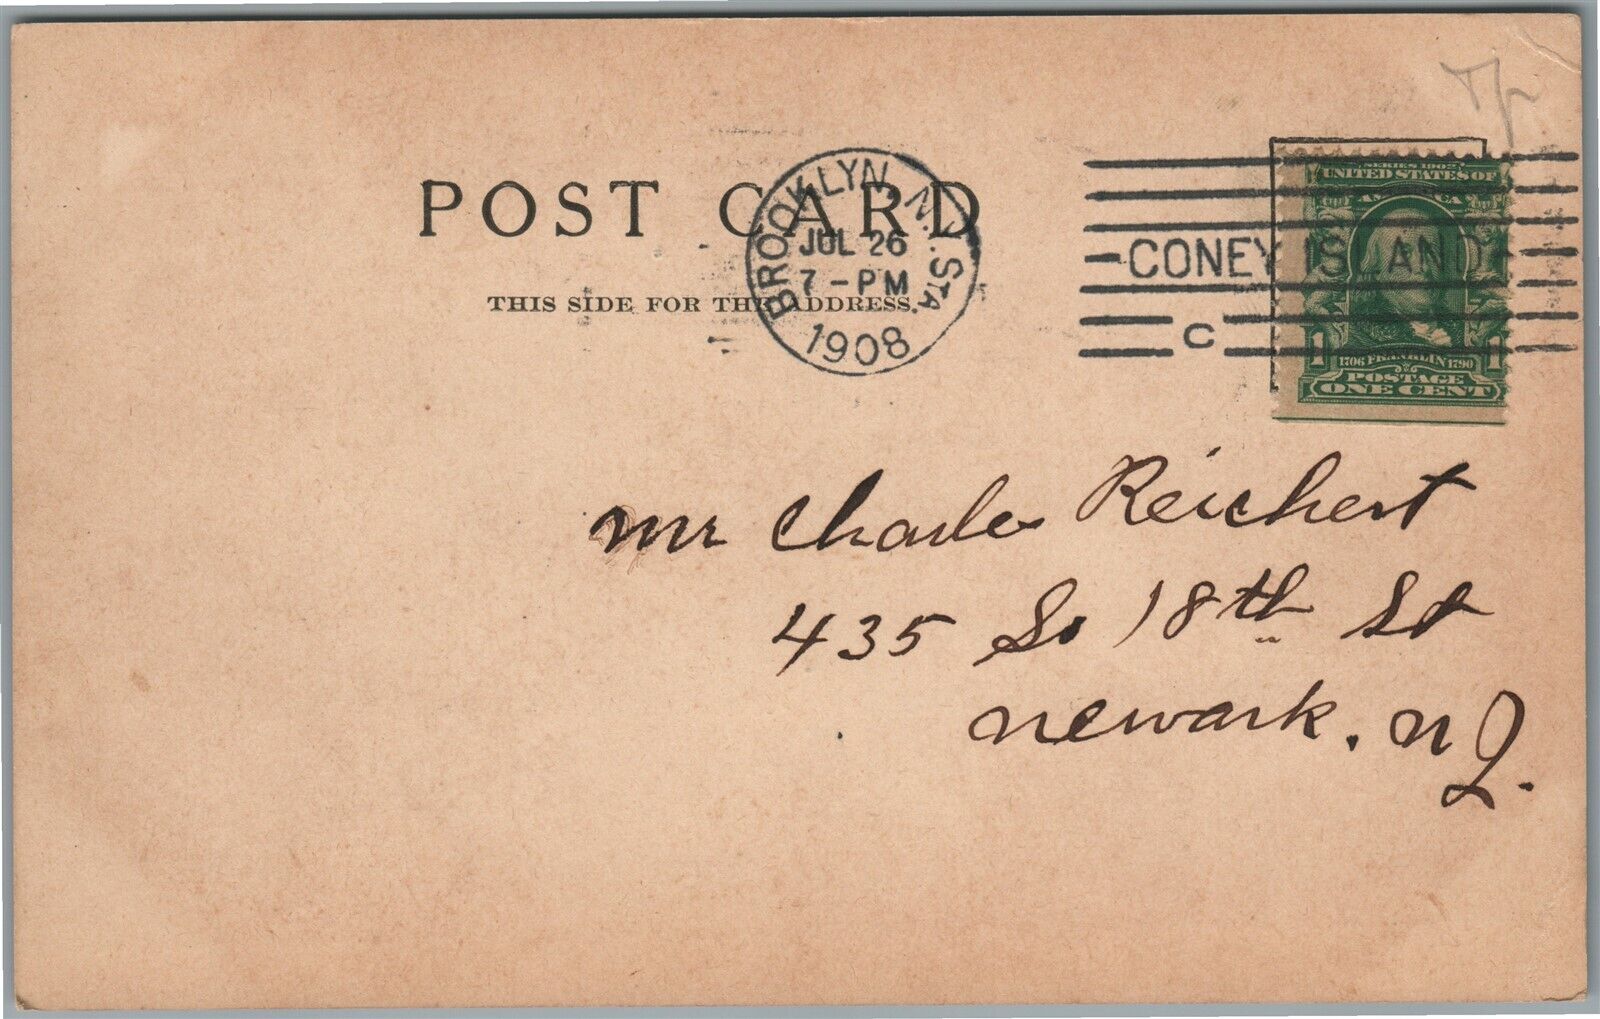 POST CARD
THIS SIDE FOR THE ADDRESS.
BROOKLYN, N.Y. STA.
JUL 26
7-PM
1908
CONEY ISLAND
C
SERIES 1902
UNITED STATES OF
AMERICA
1 1
1706 FRANKLIN 1790
POSTAGE
ONE CENT
Mr Charles Reichert
435 So 18th St
Newark, N J.